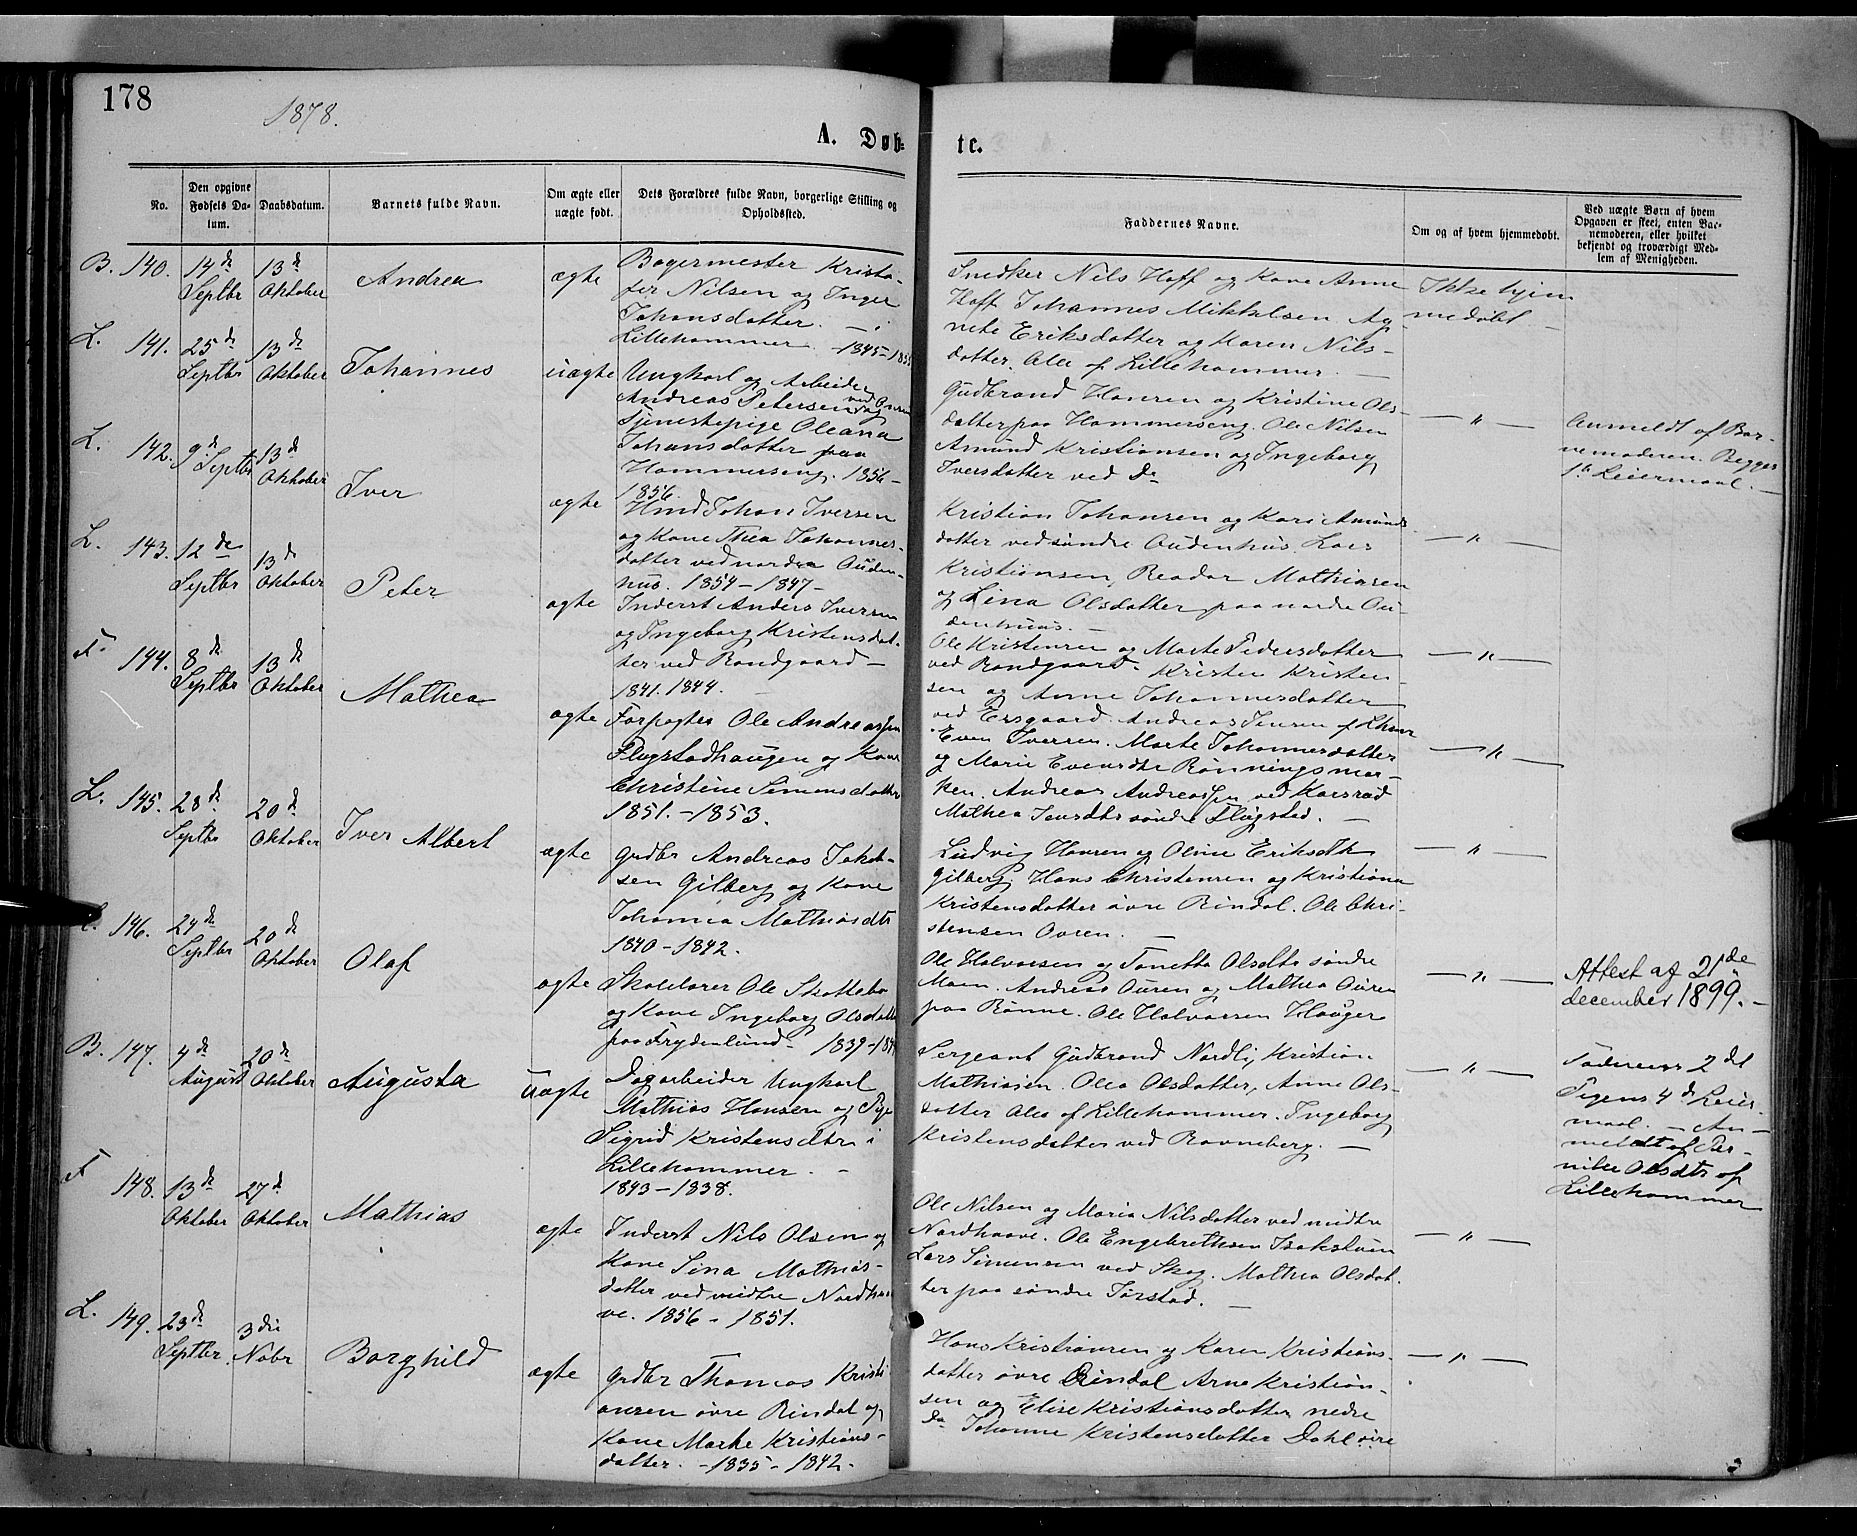 178
1878.
A. Døb-
te.
No.
Den opgivne
Fødsels Da-
tum.
Daabsdatum.
Barnets fulde Navn.
Om ægte eller
uægte født.
Dets Forældres fulde Navn, borgerlige Stilling og
Opholdssted.
Faddernes Navne.
Om og af hvem hjemmedøbt.
Ved uægte Børn af hvem
Opgaven er skeet, enten Bar-
nemoderen, eller hvilket
bekjendt og troværdigt Med-
lem af Menigheden.
B. 140. 14de Septbr 13de Oktober Andrea ægte
Bagermester Kristo-
fer Nilsen og Inger
Johansdatter. i
Lillehammer. 1845-
Snedker Nils Hoff og Kone Anne
Hoff Johannes Mikkelsen Ag-
nete Eriksdatter og Karen Nils-
datter. Alle af Lillehammer.
Ikke hjem
medøbt
L. 141. 25de Septbr 13de Oktober Johannes uægte
Ungkarl og Arbeider
Andreas Petersen og
Tjenestepige Oleana
Johansdatter paa
Hammerseng. 1856-
1856.
Gudbrand Hansen og Kristine Ols-
datter paa Hammerseng. Ole Nilsen
Amund Kristiansen og Ingeborg
Iversdatter ved Do
— " —
Anmeldt af Bar-
nemoderen. Begges
1te Leiermaal.
L. 142. 9de Septbr 13de Oktober Iver ægte
Hmd Johan Iversen
og Kone Thea Johannes-
datter ved nordre Auden-
hus. 1854-1847-
Kristian Johansen og Kari Amunds
datter ved søndre Audenhus. Lars
Kristiansen, Reodor Mathiasen
og Lina Olsdatter paa nordre Au
denhuus.
— " —
L. 143. 12de Septbr 13de Oktober Peter ægte
Inderst Anders Iversen
og Ingeborg Kristensdat-
ter ved Randgaard
1841. 1844.
Ole Kristensen og Marte Pedersdatter
ved Randgaard. Kristen Kristen-
sen og Anne Johannesdatter
ved Ersgaard. Andreas Jensen af Lhamr
— " —
F. 144. 8de Septbr 13de Oktober Mathea ægte
Forpagter Ole Andreassen
Flugstadhaugen og Kone
Christine Simensdatter
1851.-1853.
Even Iversen. Marte Johannesdatter
og Marie Evensdtr Rønningsmar-
ken. Andreas Andreassen ved Korsrud
Mathea Jensdtr søndre Flugstad.
— " —
L. 145. 28de Septbr 20de Oktober Iver Albert ægte
Grdbr Andreas Johan-
sen Gilberg og Kone
Johanna Mathiasdtr
1840-1842.
Ludvig Hansen og Oline Eriksdtr
Gilberg. Hans Christensen og Kristiana
Kristensdatter øvre Rindal. Ole Chri-
stensen Ouren.
— " —
146. 24de Septbr 20de Oktober Olaf ægte
Skolelærer Ole Skottebo
og Kone Ingeborg Olsdatter
paa Frydenlund. 1839-
Ole Halvorsen og Tonetta Olsdtr søndre
Moen. Andreas Ouren og Mathea Ouren
paa Rønne. Ole Halvorsen Hauger
— " —
Attest af 21de
december 1899.
B. 147. 4de August 20de Oktober Augusta uægte
Dagarbeider Ungkarl
Mathias Hansen og Pige
Sigrid Kristensdtr i
Lillehammer.
1843-1838.
Sergeant Gudbrand Nordli, Kristian
Mathiasen. Olea Olsdatter, Anne Ols-
datter Alle af Lillehammer. Ingeborg
Kristensdatter ved Ravneberg.
— " —
Faderens 2det
Pigens 4de Leier-
maal. An-
meldt af Per-
nille Olsdtr af
Lillehammer
F 148. 13de Oktober 27de Oktober Mathias ægte
Inderst Nils Olsen og
Kone Lina Mathias-
datter ved midtre Nordhaa
ve. 1856-1851.
Ole Nilsen og Maria Nilsdatter ved midtre
Nordhaave. Ole Engebrethsen Isakstuen
Lars Simensen ved Skog. Mathea Olsdat-
ter paa søndre Jørstad.
— " —
L. 149. 23de Septbr. 3die Novbr Borghild ægte
Grdbr Thomas Kristi
ansen øvre Rindal og
Kone Marte Kristians-
datter. -1835-1842-
Hans Kristiansen og Karen Kristians-
datter øvre Rindal Arne Kristian-
sen og Elise Kristiansdatter nedre
Do Johanne Kristensdatter Dahl øvre
— " —